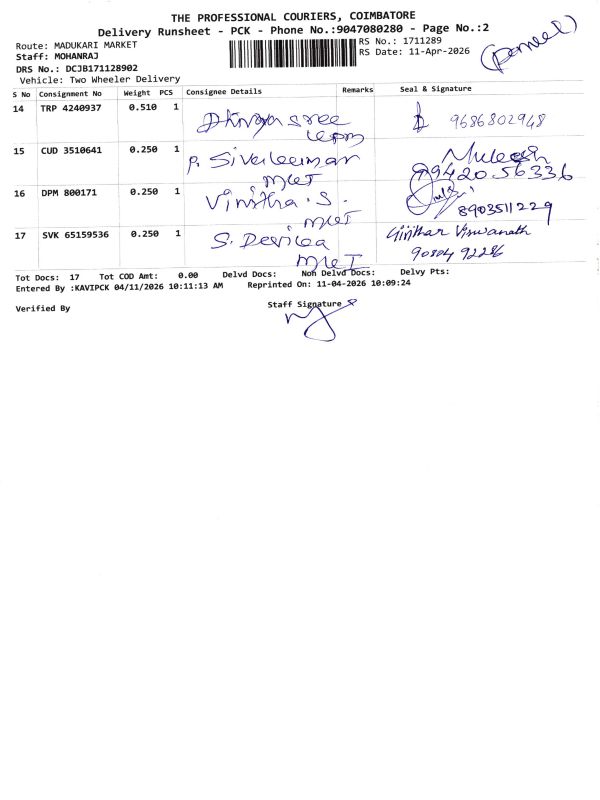 THE PROFESSIONAL COURIERS, COIMBATORE
Delivery Runsheet - PCK - Phone No.:9047080280 - Page No.:2
Route: MADUKARI MARKET
RS No.: 1711289
Staff: MOHANRAJ
RS Date: 11-Apr-2026
DRS No.: DCJB171128902
Vehicle: Two Wheeler Delivery
S No Consignment No Weight PCS Consignee Details Remarks Seal & Signature
14 TRP 4240937 0.510 1 9686802948
15 CUD 3510641 0.250 1 P.
MKT
16 DPM 800171 0.250 1 Vinitha. S.
MKT 8903511229
17 SVK 65159536 0.250 1 S. Viswanath
MKT 90804 92286
Tot Docs: 17 Tot COD Amt: 0.00 Delvd Docs: Non Delvd Docs: Delvy Pts:
Entered By :KAVIPCK 04/11/2026 10:11:13 AM Reprinted On: 11-04-2026 10:09:24
Verified By Staff Signature